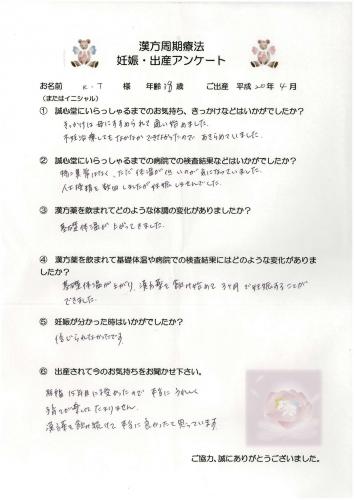 漢方周期療法
妊娠・出産アンケート
お名前 K・T 様 年齢 歳 ご出産 平成20年4月
(またはイニシャル)
① 誠心堂にいらっしゃるまでのお気持ち、きっかけなどはいかがでしたか?
きっかけは母にすすめられて通い始めました。
不妊治療してもなかなかできなかったので あきらめていました。
② 誠心堂にいらっしゃるまでの病院での検査結果などはいかがでしたか?
特に異常はなく、ただ体温が低いのが気になっていました。
人工授精を数回しましたが妊娠しませんでした。
③ 漢方薬を飲まれてどのような体調の変化がありましたか?
基礎体温が上がってきました。
④ 漢方薬を飲まれて基礎体温や病院での検査結果にはどのような変化がありま
したか?
基礎体温が上がり、漢方薬を飲み始めて3ヶ月で妊娠することが
できました。
⑤ 妊娠が分かった時はいかがでしたか?
信じられなかったです。
⑥ 出産されて今のお気持ちをお聞かせ下さい。
結婚15年目に授かったので 本当にうれしく
子育てが楽しくてたまりません。
漢方薬を飲み続けて本当に良かったと思っています。
ご協力、誠にありがとうございました。